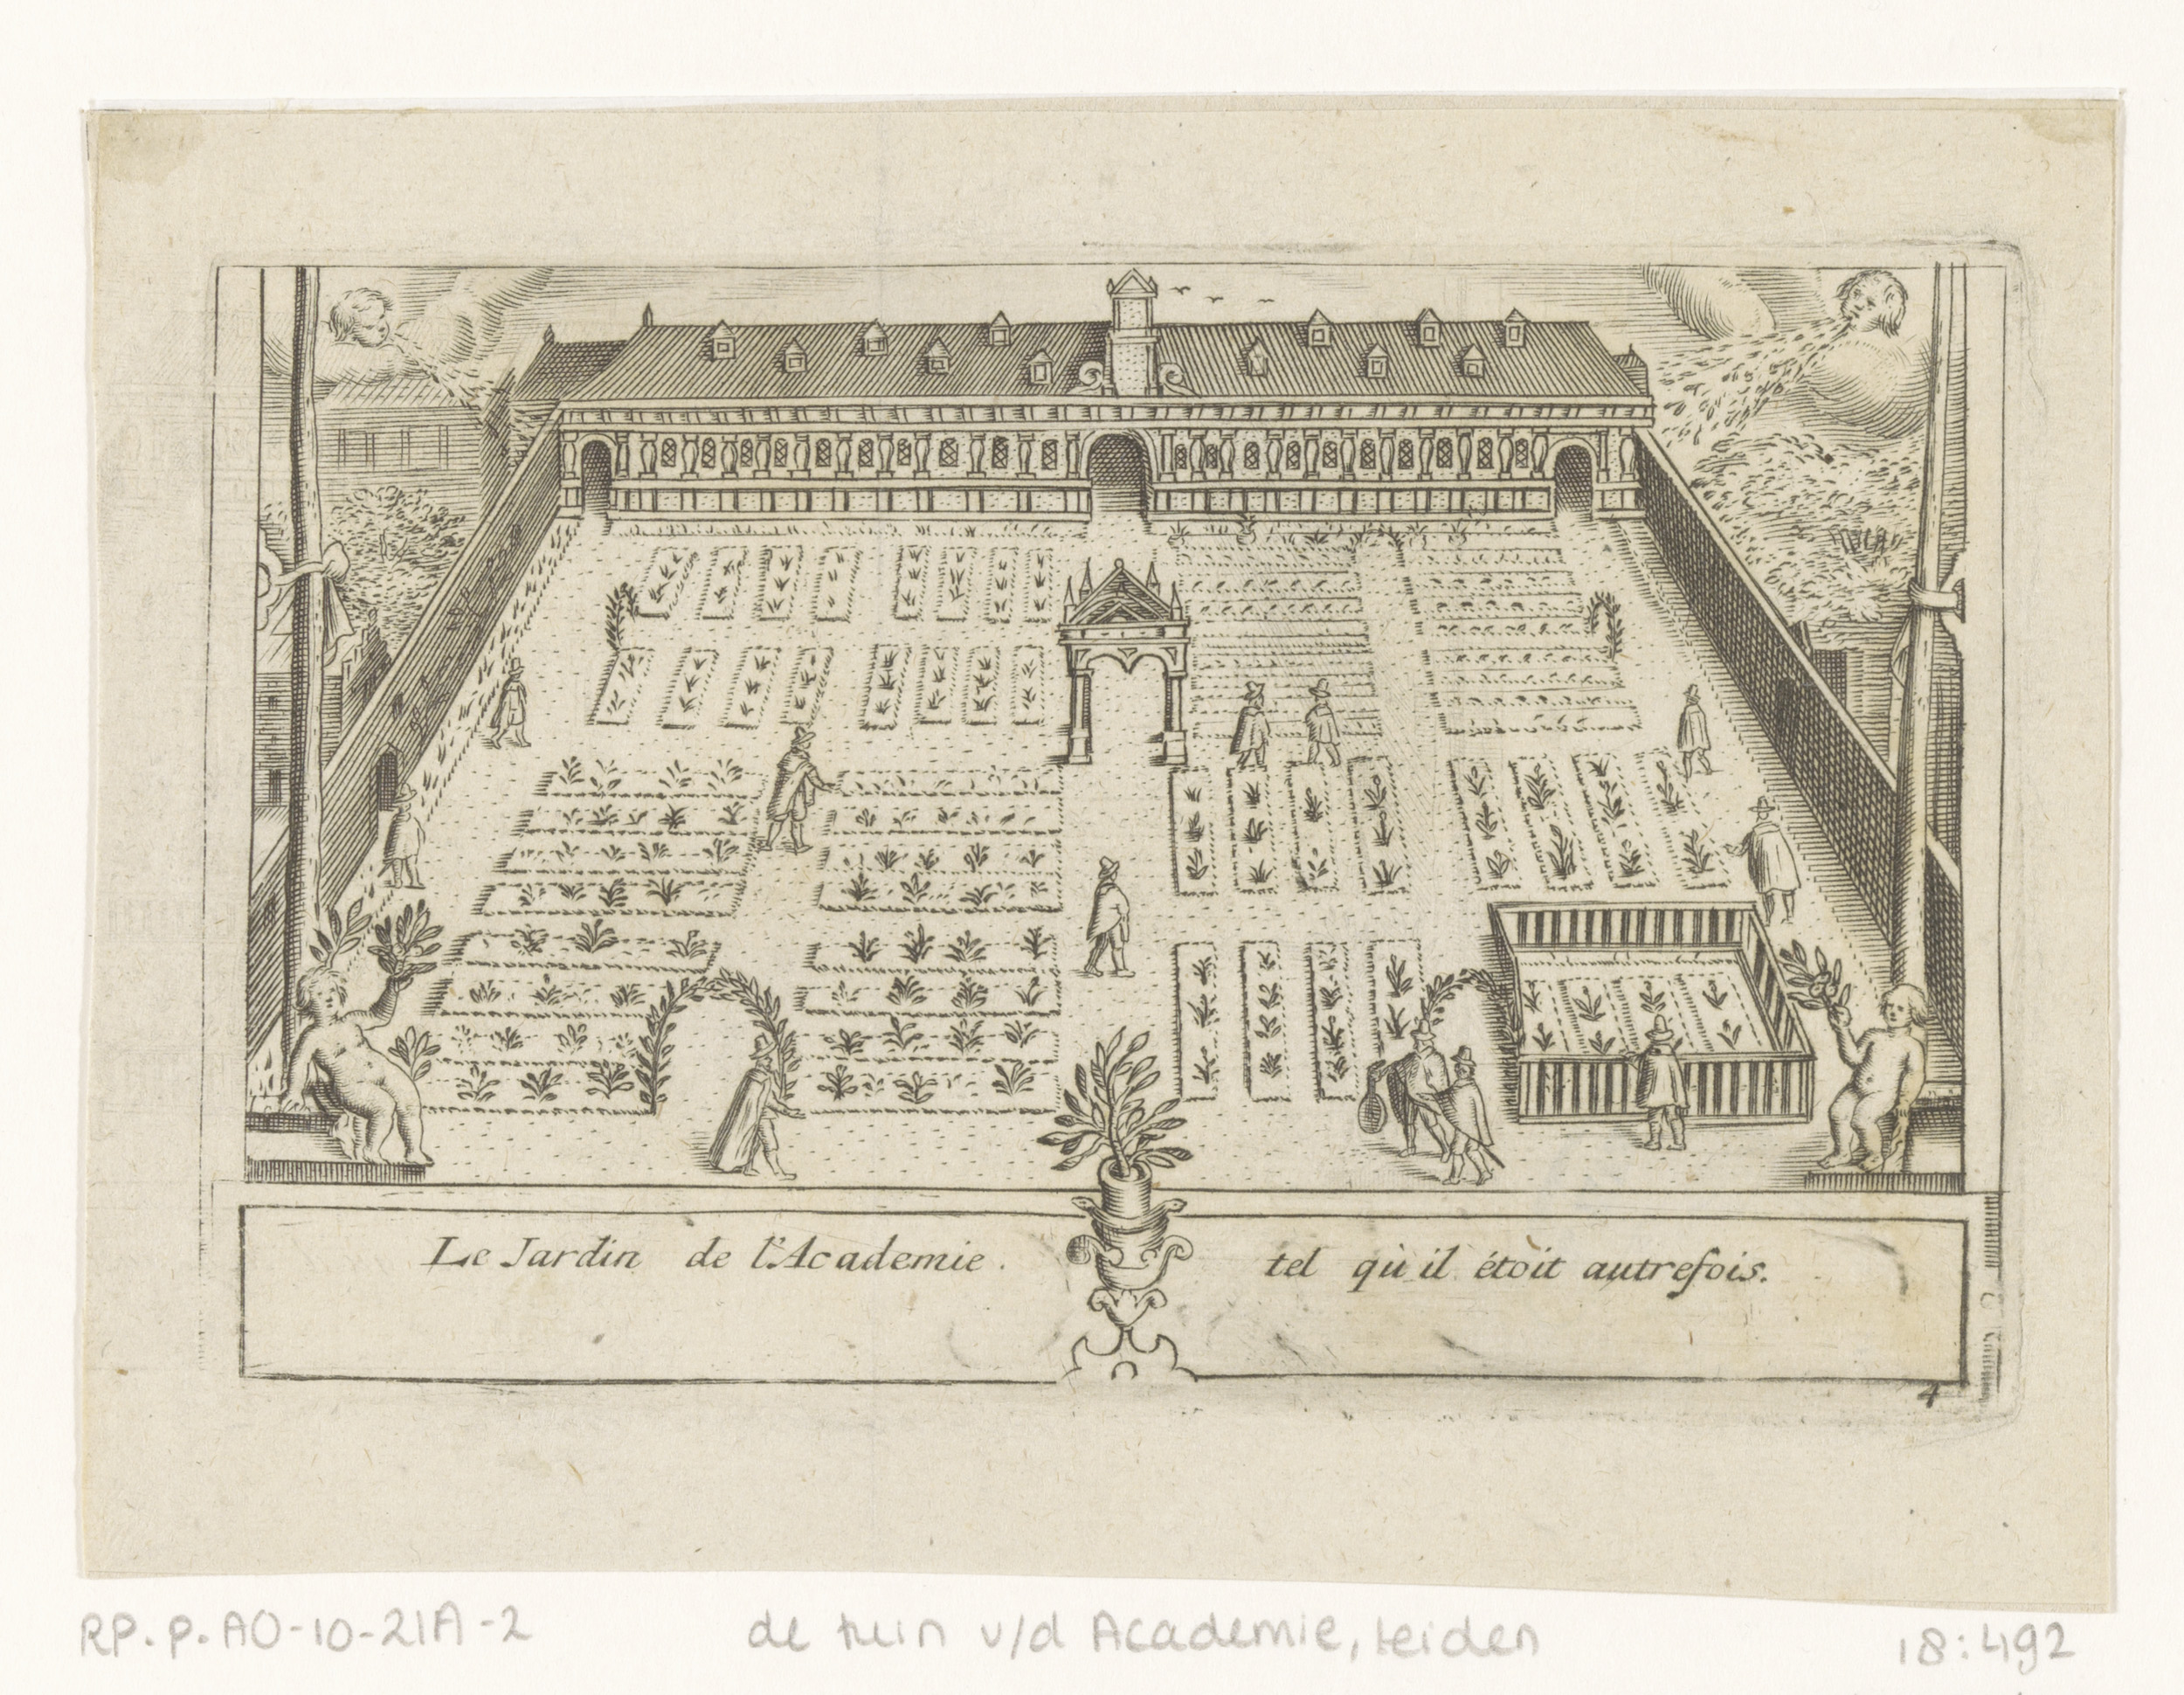 Le Jardin de l'Academie. tel qu'il étoit autrefois.
4
RP.P.AO-10-21A-2 de tuin v/d Academie, Leiden 18:492